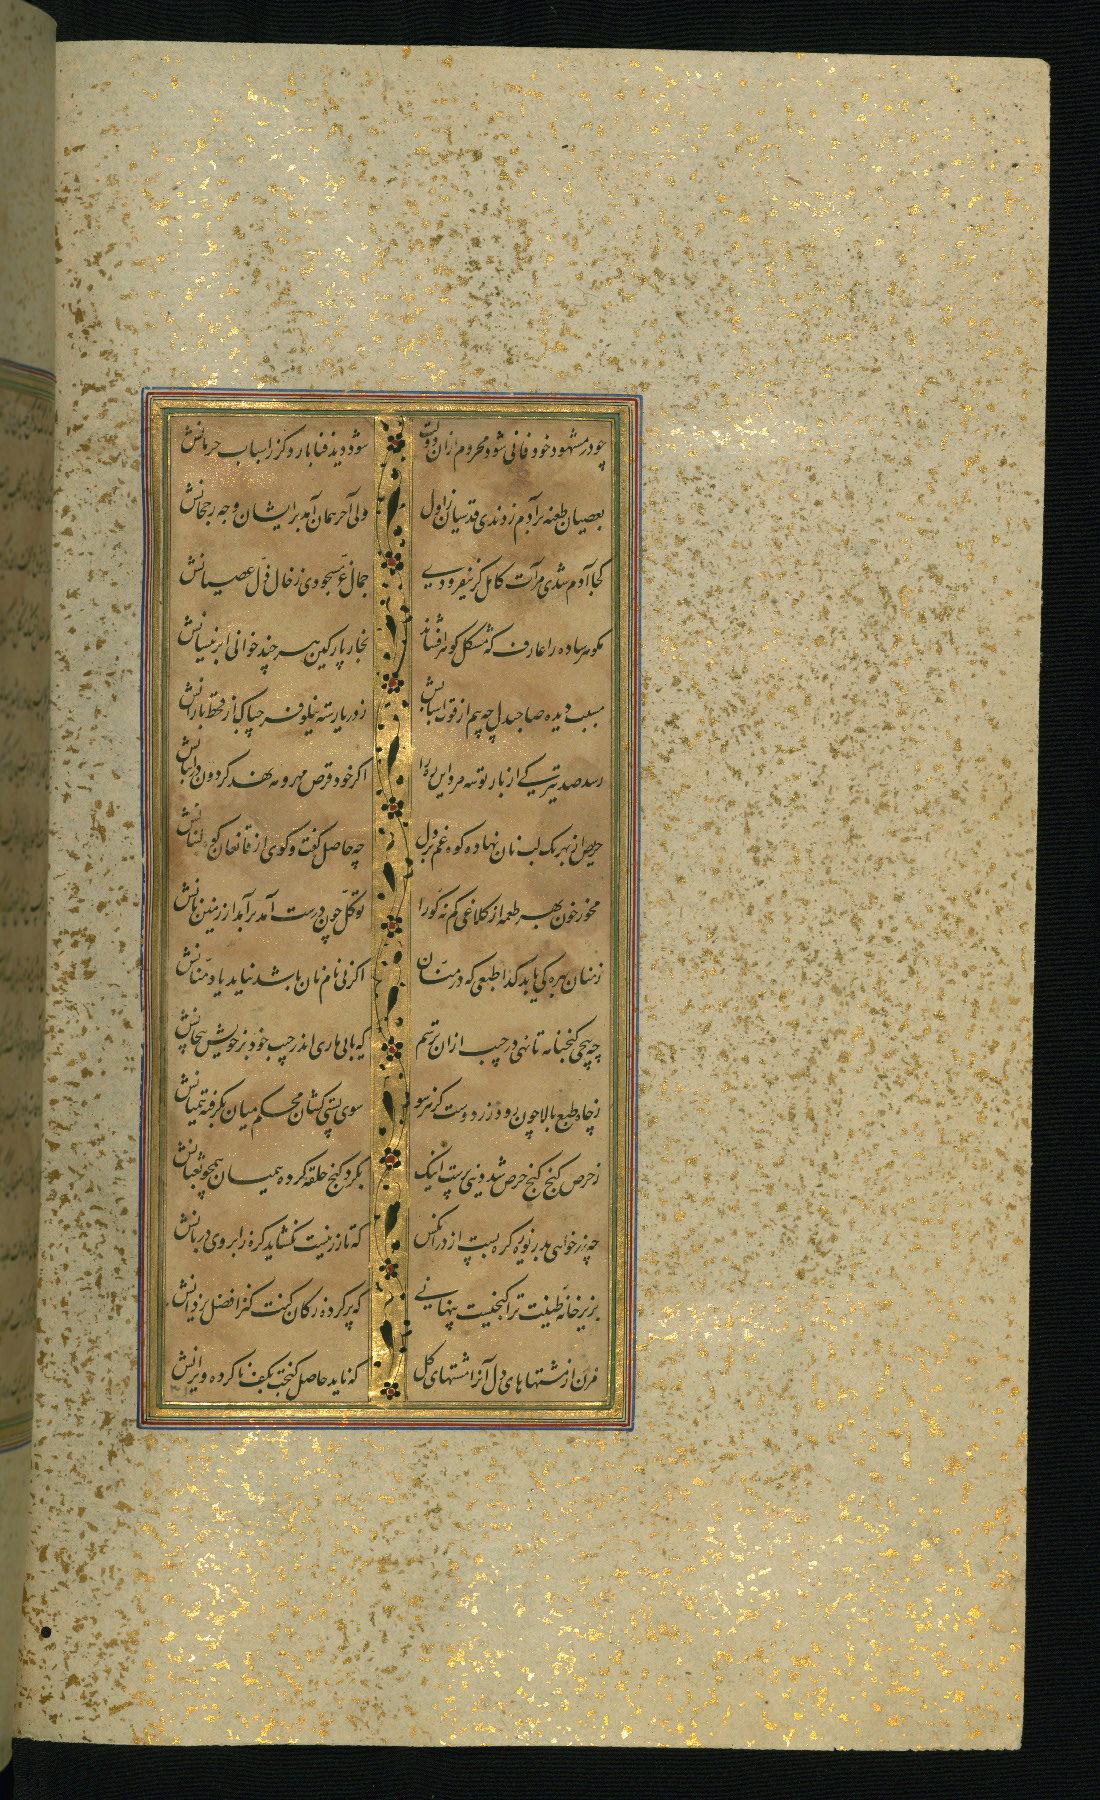 چو در مشهود خود فانی شود محروم ازان دولت شود دید فنا بار دکر ز اسباب حرمانش
بعصیان طعنه بر آدم زدندی قدسیان ز اول ولی آخر همان آمد بر ایشان وجه رجحانش
کجا آدم شدی مرآت کامل کر نیفزودی جمال عزّ مسجودی ز خال ذلّ عصیانش
مکو مر ساده را عارف که مشکل کوهر افشاند بخار پارکین هر چند خوانی ابر نیسانش
مسبب دیده صاحبدل چه بیم از فوت اسبابش ز دریا رسته نیلوفر چه باک از قحط بارانش
رسد صد تیر یکی از بار توشه مرد این ره را اکر خود قرص مهر و مه نهد کردون در انبانش
حریص از بهر یک لب نان نهاده کوه غم بر دل چه حاصل کفت و کوی از قانعان کنج لبنانش
مخور خون بهر طعمه از کلاغی کم نه کورا توکل چون درست آمد برآید از زمین نانش
ز منان بهره کی یابد کدا طبعی که در منّان اکر نی نام نان باشد نیاید یاد منّانش
چه پیچی کیمیا نه تا نهی در جیب ازان ترسم که یابی ماری اندر جیب خود بر خویش پیچانش
ز چاه طبع بالا چون رود زر دوست کز هر سو سوی پستی کشان محکم میان بکرفته همیانش
ز حرص کنج کنج حرص شد دنیی پرست اینک بکرد کنج حلقه کرده همیان همچو ثعبانش
چه زر خواهی بدریوزه کره بست از در آنکس که تا زر نیست نکشاید کره ز ابروی دربانش
بزیر خانه طینت ترا کنجیست پنهانی که پر کرده ز کان کنت کنزا فضل یزدانش
مزن از مشتهاهای دل آنرا مشتهای کل که ناید حاصل کنجت بکف ناکرده ویرانش